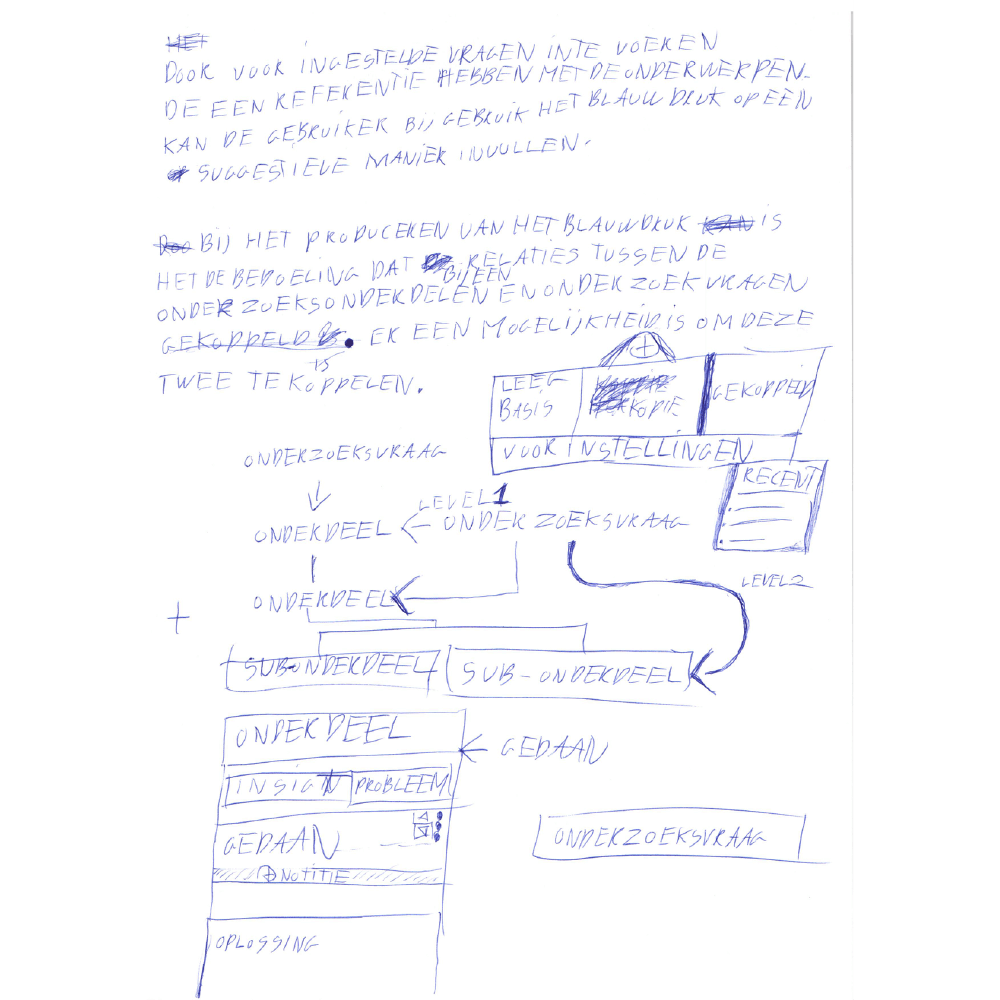 HET
DOOR VOOR INGESTELDE VRAGEN IN TE VOEREN
DE EEN REFERENTIE HEBBEN MET DE ONDERWERPEN.
KAN DE GEBRUIKER BIJ GEBRUIK HET BLAUWDRUK OP EEN
SUGGESTIEVE MANIER INVULLEN.
BIJ HET PRODUCEREN VAN HET BLAUWDRUK KAN IS
HET DE BEDOELING DAT RELATIES TUSSEN DE
BIJEEN
ONDERZOEKSONDERDELEN EN ONDERZOEKVRAGEN
GEKOPPELD. ER EEN MOGELIJKHEID IS OM DEZE
IS
TWEE TE KOPPELEN.
+
LEEG
BASIS
KOPIE
GEKOPPELD
VOORINSTELLINGEN
RECENT
ONDERZOEKSVRAAG
LEVEL 1
ONDERDEEL ← ONDERZOEKSVRAAG
LEVEL 2
ONDERDEEL
+
SUBONDERDEEL
SUB-ONDERDEEL
ONDERDEEL
← GEDAAN
INSIGN
PROBLEEM
GEDAAN
ONDERZOEKSVRAAG
+ NOTITIE
OPLOSSING